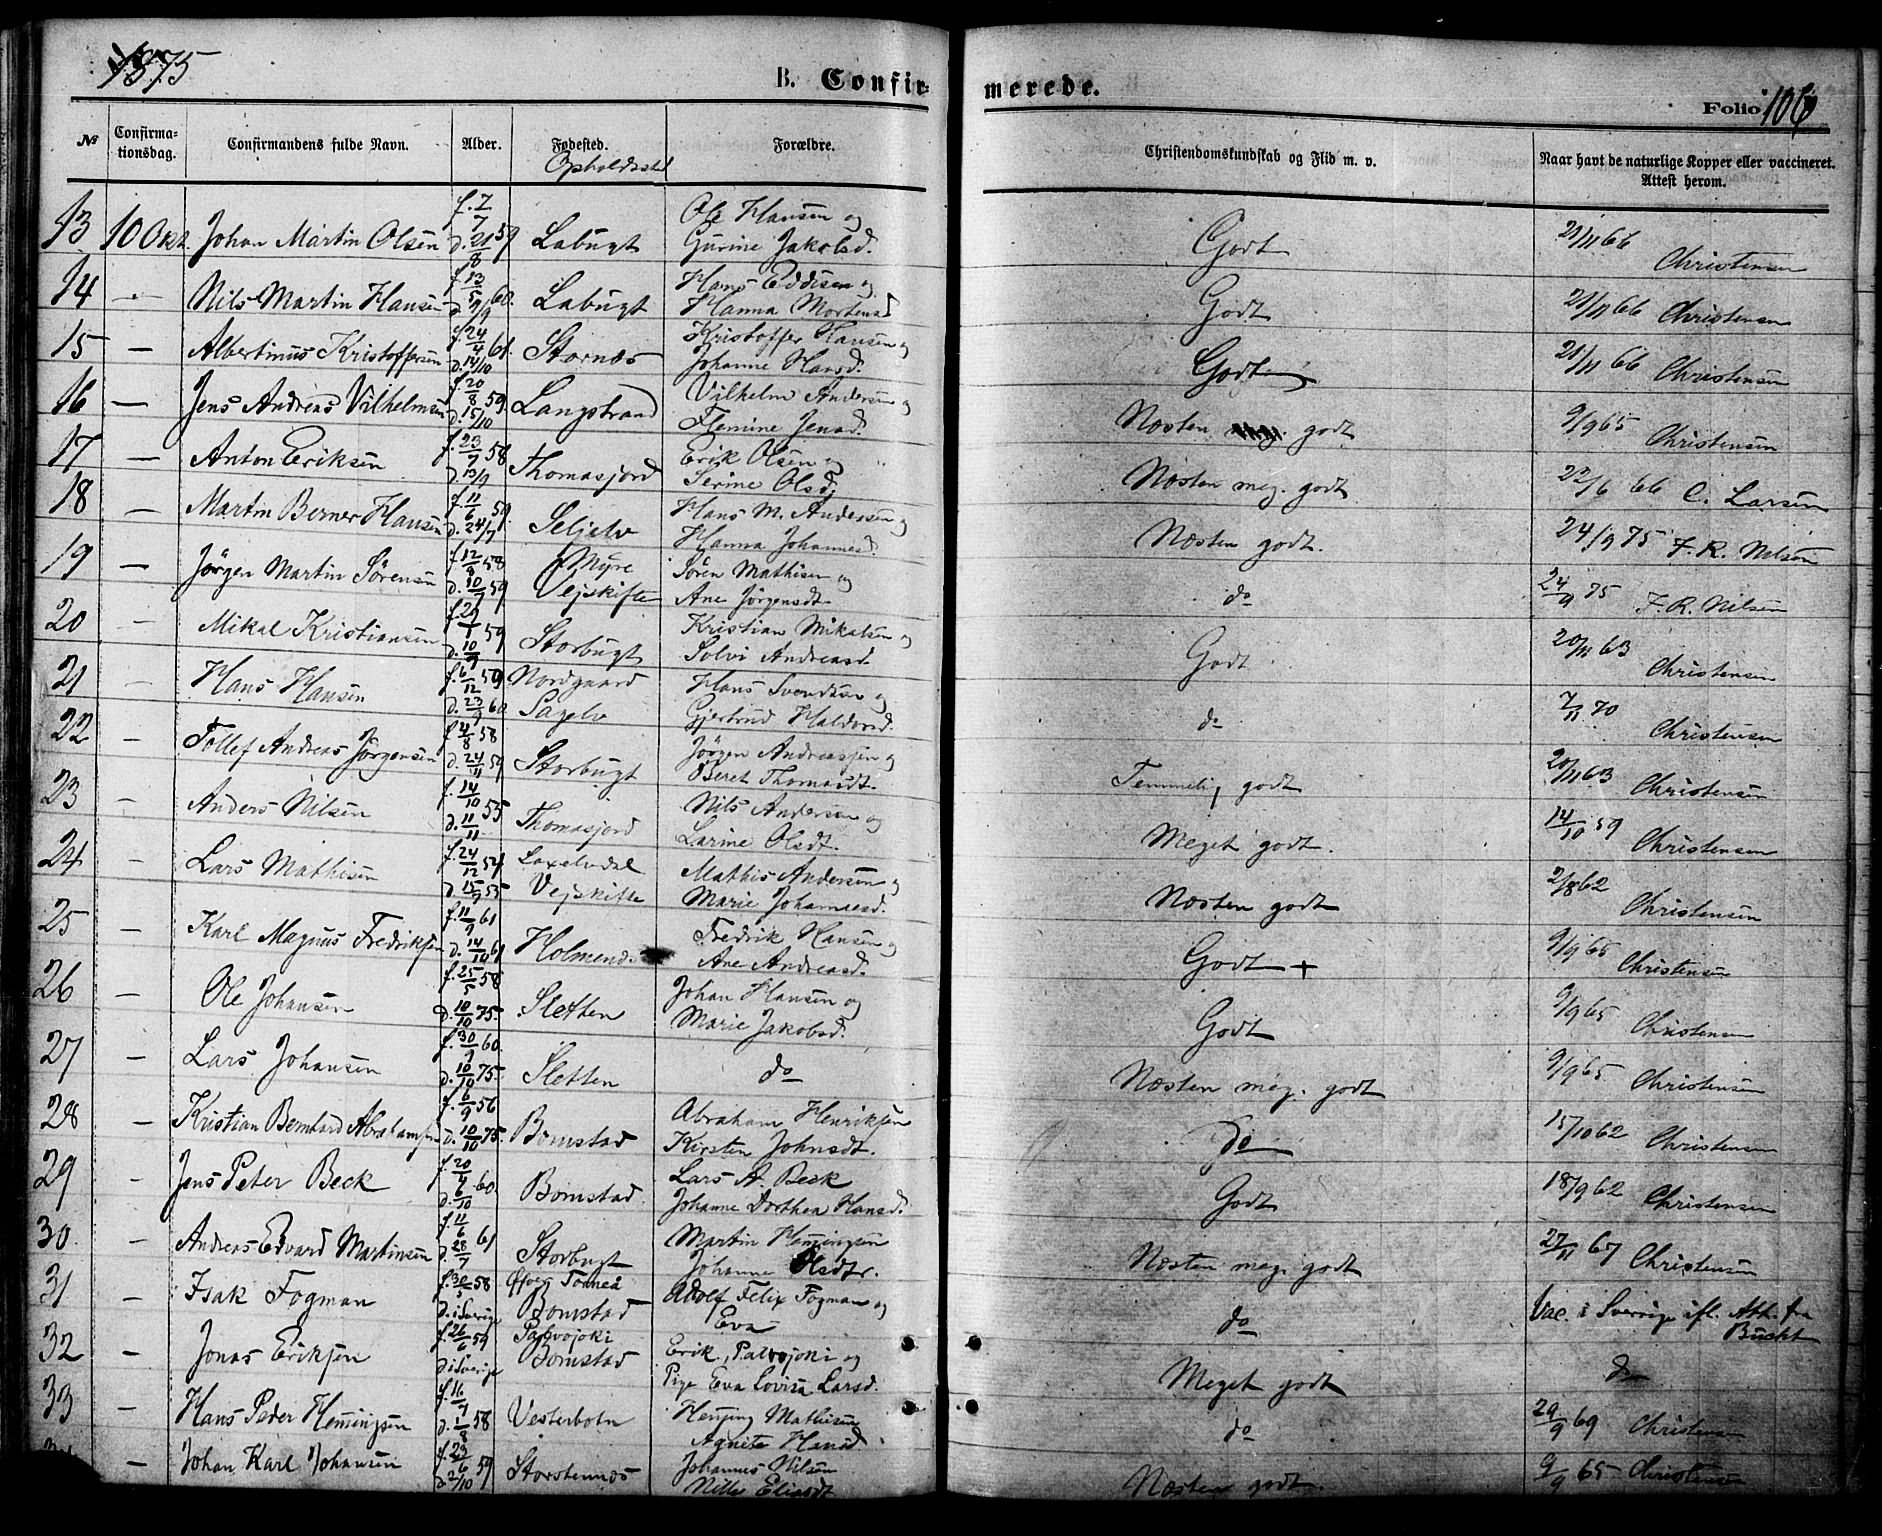 1875
B. Confirmerede.
Folio 106
№ Confirmationsdag. Confirmandens fulde Navn. Alder. Fødested. Opholdssted Forældre. Christendomskundskab og Flid m. v. Naar havt de naturlige Kopper eller vaccineret. Attest herom.
13 10 Okt. Johan Martin Olsen f. 2/7 59 d. 21/8 Labugt Ole Hansen og Gurine Jakobsd. Godt 21/11 66 Christensen
14 — Nils Martin Hansen f. 13/5 60. d. 9/9 Labugt Hans Eddisen og Hanna Mortensd Godt 21/11 66 Christensen
15 — Albertinus Kristoffersen f. 24/4 61. d. 14/10 Stornæs Kristoffer Hansen og Johanne Hansd. Godt 21/11 66 Christensen
16 — Jens Andreas Vilhelmsen f. 20/8 59. d. 15/10 Langstrand Vilhelm Andersen og Flemine Jensd. Næsten godt 9/9 65 Christensen
17 — Anton Eriksen f. 23/7 58 d. 13/9 Thomasjord Erik Olsen og Serine Olsd. Næsten meg. godt 22/6 66 C. Larsen
18 — Martin Berner Hansen f. 11/6 59. d. 24/7 Seljelv Hans M. Andersen og Hanna Johannesd. Næsten godt. 24/9 75 F. R. Nilsen
19 — Jörgen Martin Sörensen f. 12/8 58 d. 10/7 59 Myre Vejskifte Sören Mathisen og Ane Jörgensdt. do 24/9 75 F. R. Nilsen
20 — Mikal Kristiansen f. 29/1 59 d. 10/9 Storbugt Kristian Mikalsen og Solvi Andreasd. Godt 20/11 63 Christensen
21 — Hans Hansen f. 6/12 59 d. 23/9 60. Nordgaard Sagelv Hans Svendsen og Gjertrud Haldorsd. do 7/11 70 Christensen
22 — Tollef Andreas Jörgensen f. 4/8 58 d. 24/11 59 Storbugt Jörgen Andreassen og Beret Thomasdt. Temmelig godt 20/11 63 Christensen
23 — Anders Nilsen f. 14/10 55 d. 11/11 Thomasjord Nils Andersen og Larine Olsdt. Meget godt. 14/10 59 Christensen
24 — Lars Mathisen f. 24/12 54 d. 15/9 55 Laxelvdal Vejskifte Mathis Andersen og Marie Johannesd. Næsten godt 2/8 62 Christensen
25 — Karl Magnus Fredriksen f. 11/9 61 d. 14/10 61 Holmend. Fredrik Hansen og Ane Andreasd. Godt + 9/9 65 Christensen
26 — Ole Johansen f. 25/5 58 d. 10/10 75. Sletten Johan Hansen og Marie Jakobsd. Godt 9/9 65 Christensen
27 — Lars Johansen f. 30/9 60. d. 10/10 75. Sletten do Næsten meg. godt 9/9 65 Christensen
28 — Kristian Bernhard Abrahamsen f. 6/9 56 d. 10/10 75. Bomstad Abraham Henriksen Kirsten Johnsdt. do 15/10 62 Christensen
29 — Jens Peter Beck f. 20/4 60. d. 6/10 Bomstad. Lars A. Beck Johanne Dorthea Hansd. Godt 18/9 62 Christensen
30. — Andreas Edvard Martinsen f. 11/6 61 d. 28/7 Storbugt Martin Hemingsen Johanne Olsdtr. Næsten meg. godt 27/11 67 Christensen
31 — Isak Fogman f. 30/5 58 d. i Sverige Torneå Bomstad Adolf Felix Fogman og Eva do Vac. i Sverrige ifl. Att. fra Bucht
32 — Jonas Eriksen f. 26/6 59 d. i Sverige Palvojoki Bomstad Erik Palvojoki og Pige Eva Lovisa Larsd. Meget godt do
33 — Hans Peder Hemingsen f. 16/7 58 d. 1/8 Vesterbotn Heming Mathisen Agnite Hansd do 29/9 69 Christensen
— Johan Karl Johansen f. 23/6 59 d. 2/10 Storstennæs Johannes Nilsen Nille Eliasdt Næsten godt. 9/9 65 Christensen